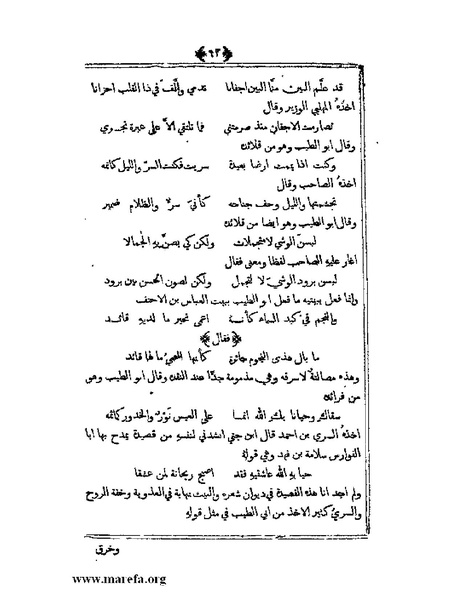 ﴿٤٣﴾
قد علّم البين منّا البين اجفانا تدمي وألّف في ذا القلب احزانا
اخذهُ المهلبي الوزير وقال
تصارمت الاجفان منذ صرمتني فما تلتقي الاَّ على عبرة تجري
وقال ابو الطيب وهو من قلائده
وكنت اذا يممت ارضا بعيدة سريت فكنت السرّ والليل كاتمه
اخذهُ الصاحب وقال
تجشمتها والليل وحف جناحه كأني سرّ والظلام ضمير
وقال ابو الطيب وهو ايضا من قلائده
لبسن الوشي لا متجملات ولكن كي يصنّ به الجمالا
اغار عليه الصاحب لفظا ومعنى فقال
لبسن برود الوشي لا لتجمل ولكن لصون الحسن بين برود
وانما فعل ببيته ما فعل ابو الطيب ببيت العباس بن الاحنف
والنجم في كبد السماء كأنه اعمى تحير ما لديه قائد
﴿فقال﴾
ما بال هذي النجوم حائرة كأنها العمي ما لها قائد
وهذه مصالتة لا سرقة وهي مذمومة جدًّا عند النقدة وقال ابو الطيب وهو
من فرائده
سقاك وحيانا بك الله انما على العيس نَوْرٌ والخدور كمائمه
اخذهُ السري بن احمد قال ابن جني انشدني لنفسه من قصيدة يمدح بها ابا
الفوارس سلامة بن فهد وهي قوله
حيا به الله عاشقيه فقد اصبح ريحانة لمن عشقا
ولم اجد انا هذه القصيدة في ديوان شعره والبيت نهاية في العذوبة وخفة الروح
والسريّ كثير الاخذ من ابي الطيب في مثل قوله
وخرق
www.marefa.org